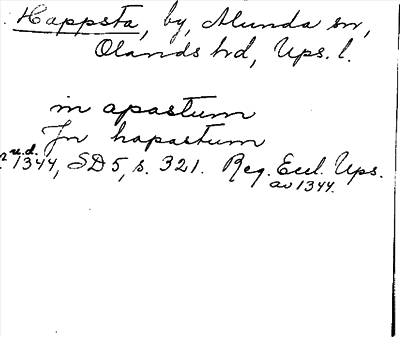 Happsta, by, Alunda sn,
Olands hd, Ups. l.
in apastum
In hapastum
u.d. 1344, SD 5, s. 321. Reg. Eccl. Ups.
av 1344.